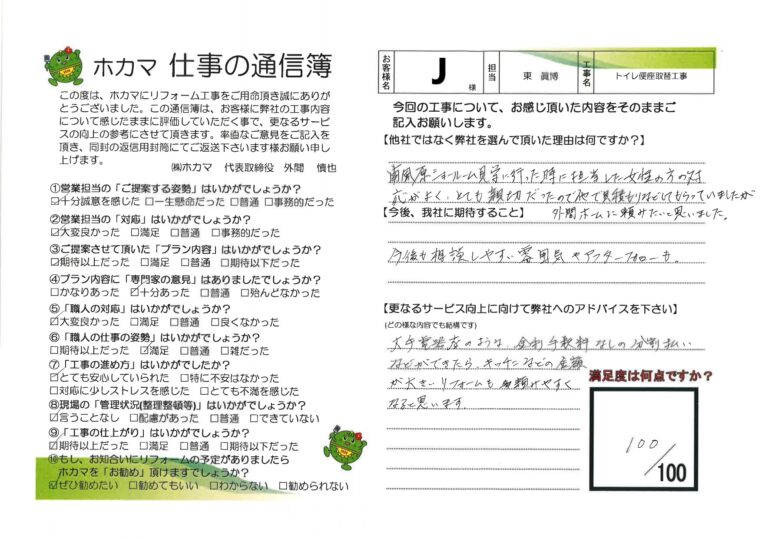 ホカマ 仕事の通信簿
この度は、ホカマにリフォーム工事をご用命頂き誠にありが
とうございました。この通信簿は、お客様に弊社の工事内容
について感じたままに評価していただく事で、更なるサービ
スの向上の参考にさせて頂きます。率直なご意見をご記入を
頂き、同封の返信用封筒にてご返送下さいます様お願い申し
上げます。
㈱ホカマ 代表取締役 外間 慎也
①営業担当の「ご提案する姿勢」はいかがでしょうか?
☑十分誠意を感じた □一生懸命だった □普通 □事務的だった
②営業担当の「対応」はいかがでしょうか?
☑大変良かった □満足 □普通 □事務的だった
③ご提案させて頂いた「プラン内容」はいかがでしょうか?
☑期待以上だった □満足 □普通 □期待以下だった
④プラン内容に「専門家の意見」はありましたでしょうか?
□かなりあった ☑十分あった □普通 □殆んどなかった
⑤「職人の対応」はいかがでしょうか?
☑大変良かった □満足 □普通 □良くなかった
⑥「職人の仕事の姿勢」はいかがでしょうか?
☑期待以上だった □満足 □普通 □雑だった
⑦「工事の進め方」はいかがでしたか?
☑とても安心していられた □特に不安はなかった
□対応に少しストレスを感じた □とても不満を感じた
⑧現場の「管理状況(整理整頓等)」はいかがでしょうか?
☑言うことなし □配慮があった □普通 □できていない
⑨「工事の仕上がり」はいかがでしょうか?
☑期待以上だった □満足 □普通 □期待以下だった
⑩もし、お知合いにリフォームの予定がありましたら
ホカマを「お勧め」頂けますでしょうか?
☑ぜひ勧めたい □勧めてもいい □わからない □勧められない
お客様名 J 様 担当 東 眞博 工事名 トイレ便座取替工事
今回の工事について、お感じ頂いた内容をそのままご
記入お願いします。
【他社ではなく弊社を選んで頂いた理由は何ですか?】
南風原ショールーム見学に行った時に担当した女性の方の対
応がよく、とても親切だったので他で見積もりなどしてもらっていましたが
外間ホームに頼みたいと思いました。
【今後、我社に期待すること】
今後も相談しやすい雰囲気やアフターフォローも。
【更なるサービス向上に向けて弊社へのアドバイスを下さい】
(どの様な内容でも結構です)
大手電器店のような、金利手数料なしの分割払い
などができたら、キッチンなどの金額
が大きいリフォームも頼みやすく
なると思います。
満足度は何点ですか?
100/100